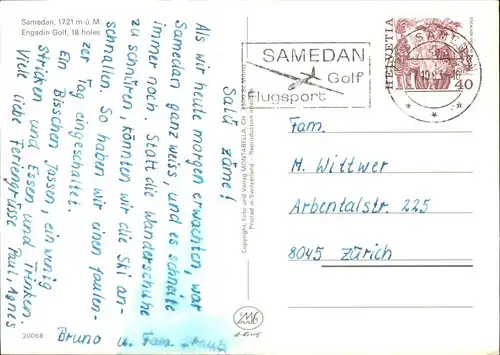 Samedan, 1721 m ü. M
Engadin Golf, 18 holes
Salü zäme!
Als wir heute morgen erwachten, war
Samedan ganz weiss, und es schneite
immer noch. Statt die Wanderschuhe
zu schnüren, könnten wir die Ski an-
schnallen. So haben wir einen faulen-
zer Tag eingeschaltet.
Ein Bisschen Jassen, ein wenig
Stricken und Essen und Trinken.
Viele liebe Feriengrüsse Paul, Agnes
Bruno u. Fam.
20068
Copyright, Foto und Verlag MONTABELLA, CH
Printed in Switzerland Reproduction
SAMEDAN
Golf
Flugsport
HELVETIA
40
SAMEDAN
Fam.
M. Wittwer
Arbentalstr. 225
8045 Zürich